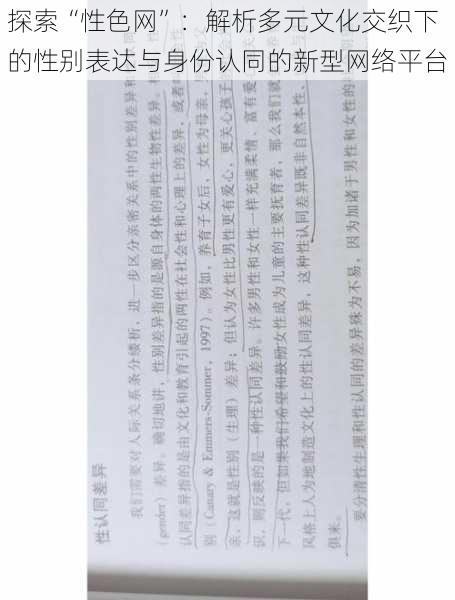 探索“性色网”：解析多元文化交织下
的性别表达与身份认同的新型网络平台
性认同差异
我们需要对人际关系条分缕析，进一步区分亲密关系中的性别差异和
（gender）差异。确切地讲，性别差异指的是源自身体的两性生物性差异。
认同差异指的是由文化和教育引起的两性在社会性和心理上的差异，或者
别（Canary & Emmers-Sommer, 1997）。例如，养育子女后，女性为母亲，
亲，这就是性别（生理）差异；但认为女性比男性更有爱心，更关心孩子
识，则反映的是一种性认同差异。许多男性和女性一样充满柔情、富有爱
下一代，但如果我们希望和鼓励女性成为儿童的主要抚育者，那么我们就
风格上人为地制造文化上的性认同差异，这种性认同差异既非自然本性、
俱来。
要分清性生理和性认同的差异殊为不易，因为加诸于男性和女性的